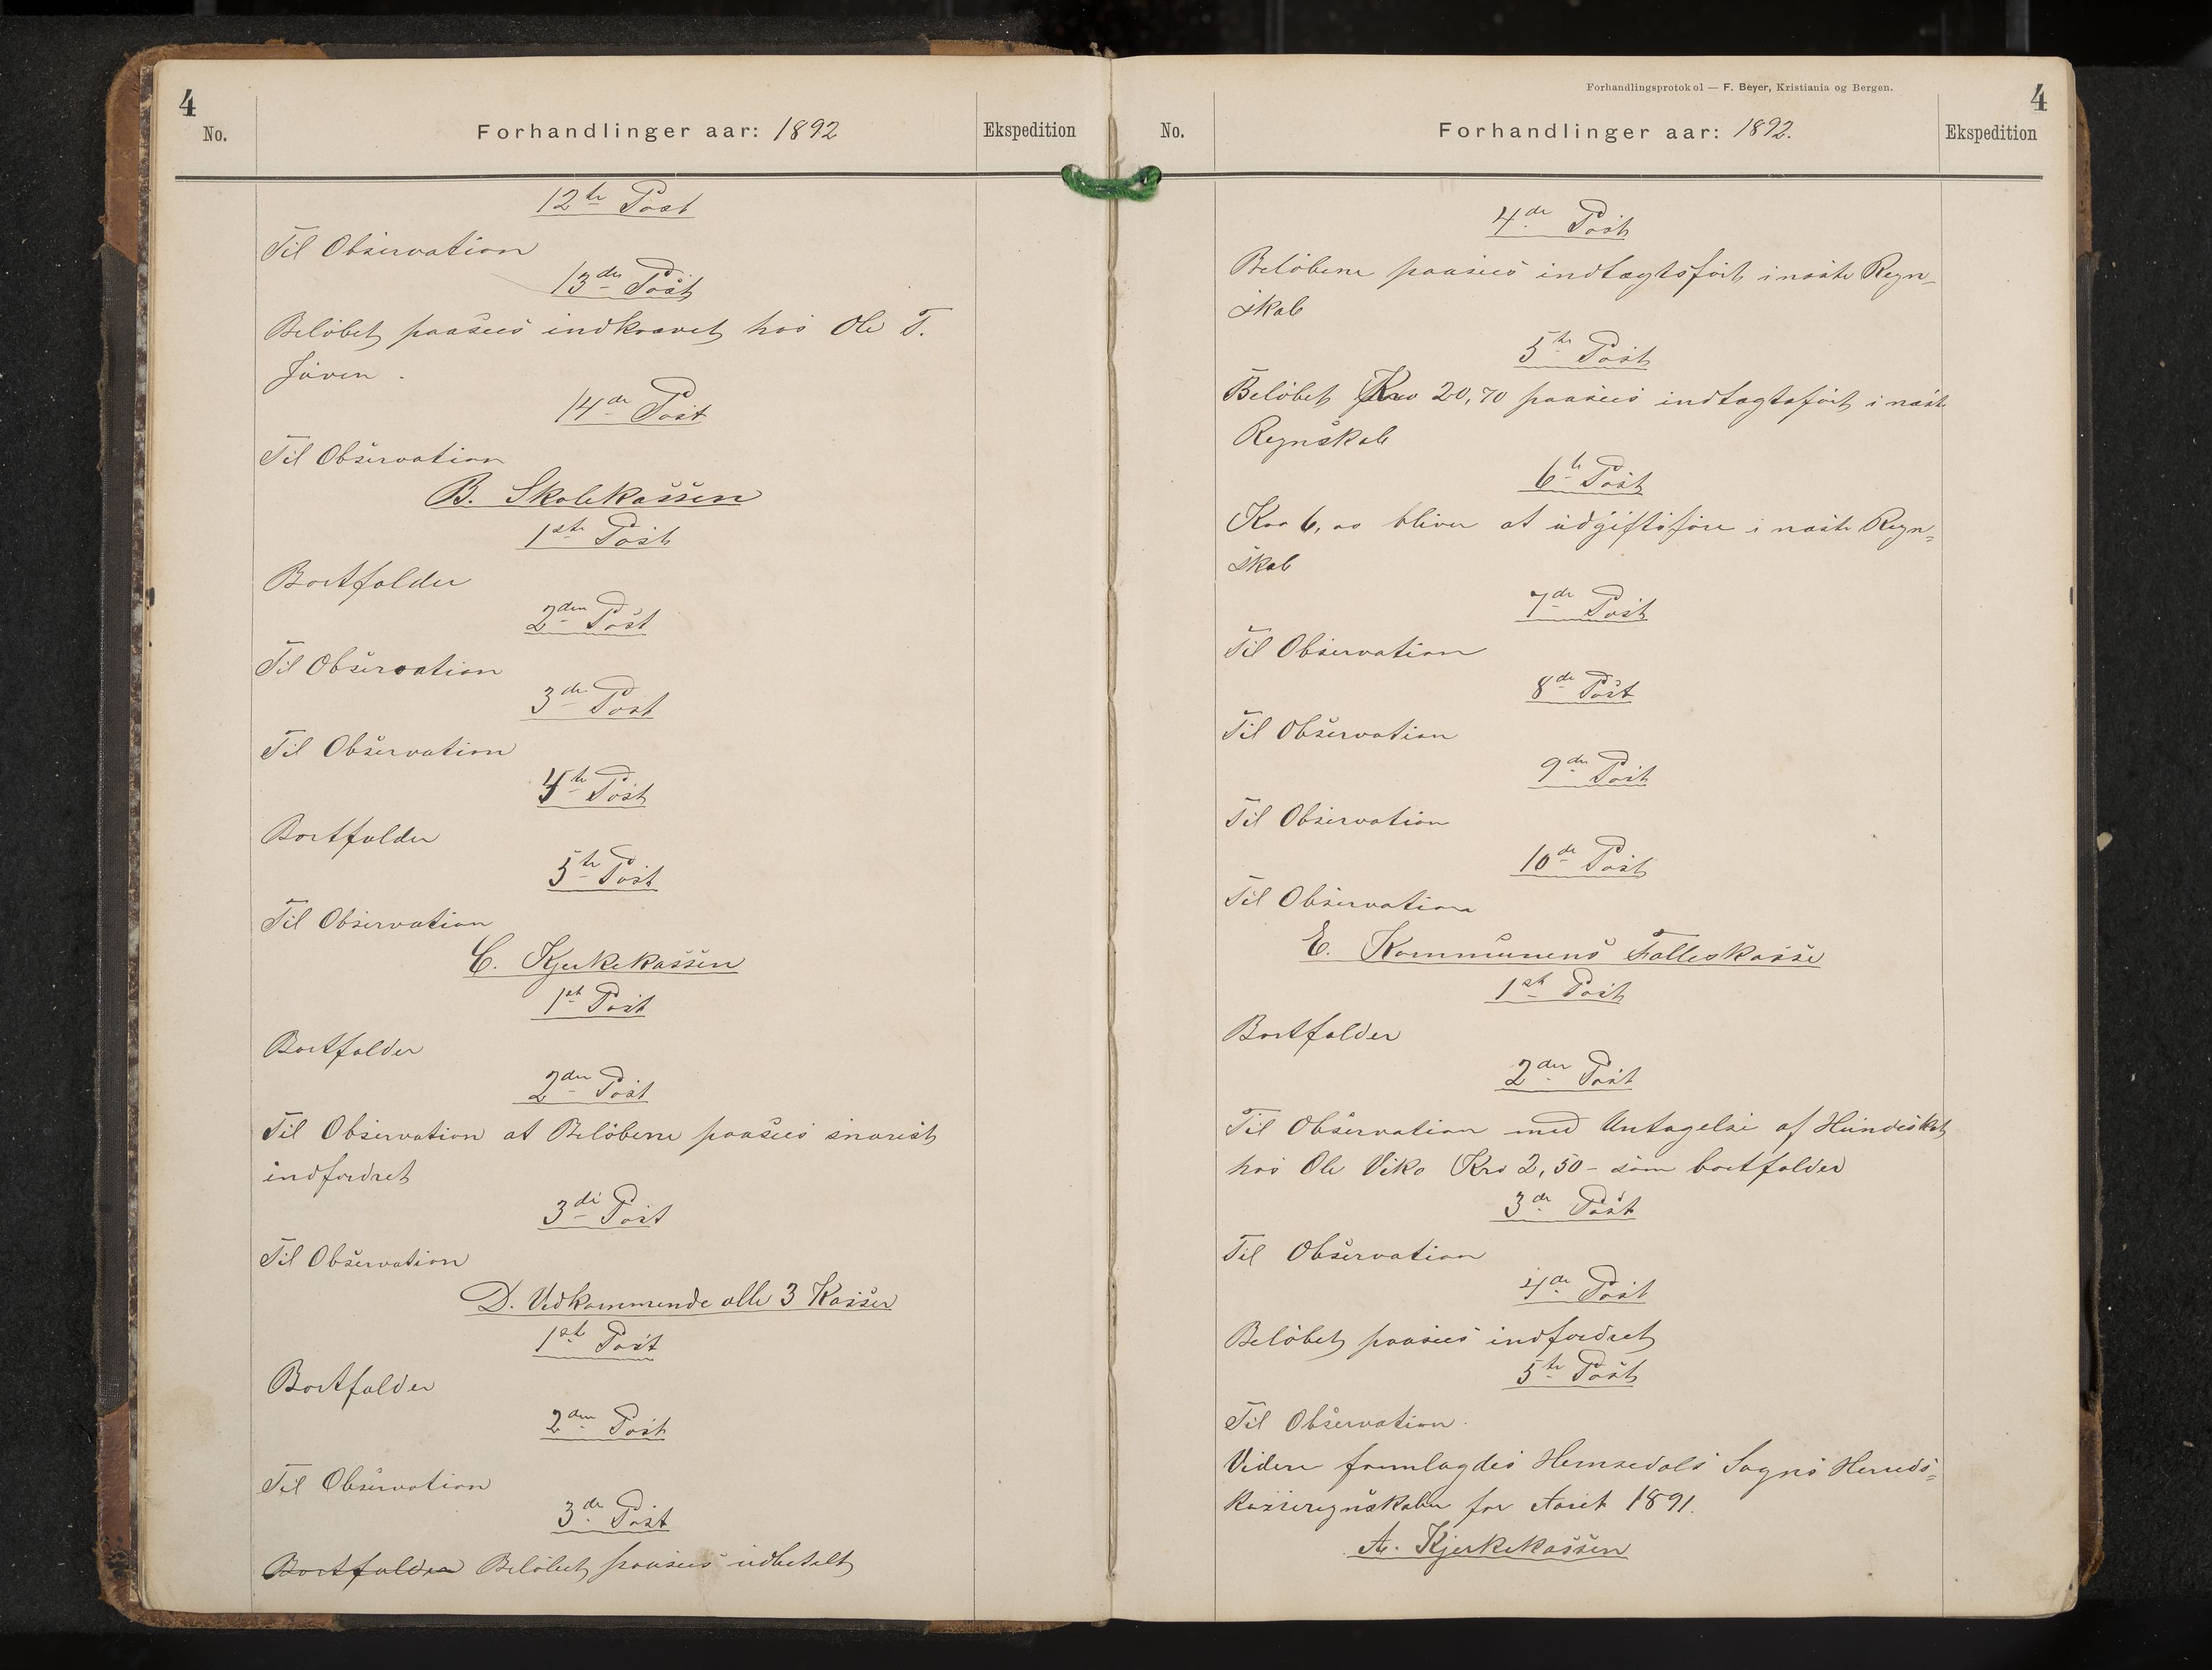 4
No.
Forhandlinger aar: 1892
Ekspedition
12te Post
Til Observation
13de Post
Beløbet paasees indkrævet hos Ole T.
Jüven.
14de Post
Til Observation
B. Skolekassen
1ste Post
Bortfalder
2den Post
Til Observation
3de Post
Til Observation
4te Post
Bortfalder
5te Post
Til Observation
C. Kjerkekassen
1ste Post
Bortfalder
2den Post
Til Observation at Beløbene paasees snarest
indfordret
3die Post
Til Observation
D. Vedkommende alle 3 Kasser
1ste Post
Bortfalder
2den Post
Til Observation
3de Post
Bortfalder Beløbet paasees udbetalt
Forhandlingsprotokol — F. Beyer, Kristiania og Bergen.
4
No.
Forhandlinger aar: 1892.
Ekspedition
4de Post
Beløbene paasees indtægtsført i næste Regn-
skab
5te Post
Beløbet Kro 20,70 paasees indtægtsført i næste
Regnskab
6te Post
Kro 6,00 bliver at üdgiftsføre i næste Regn=
skab
7de Post
Til Observation
8de Post
Til Observation
9de Post
Til Observation
10de Post
Til Observation
E. Kommunens Fælleskasse
1ste Post
Bortfalder
2den Post
Til Observation med Untagelse af Hündeskat
hos Ole Viko Kro 2,50 - som bortfalder
3de Post
Til Observation
4de Post
Beløbet paasees indfordret
5te Post
Til Observation.
Videre fremlagdes Hemsedals Sogns Herreds=
kasseregnskaber for Aaret 1891.
A. Kjerkekassen